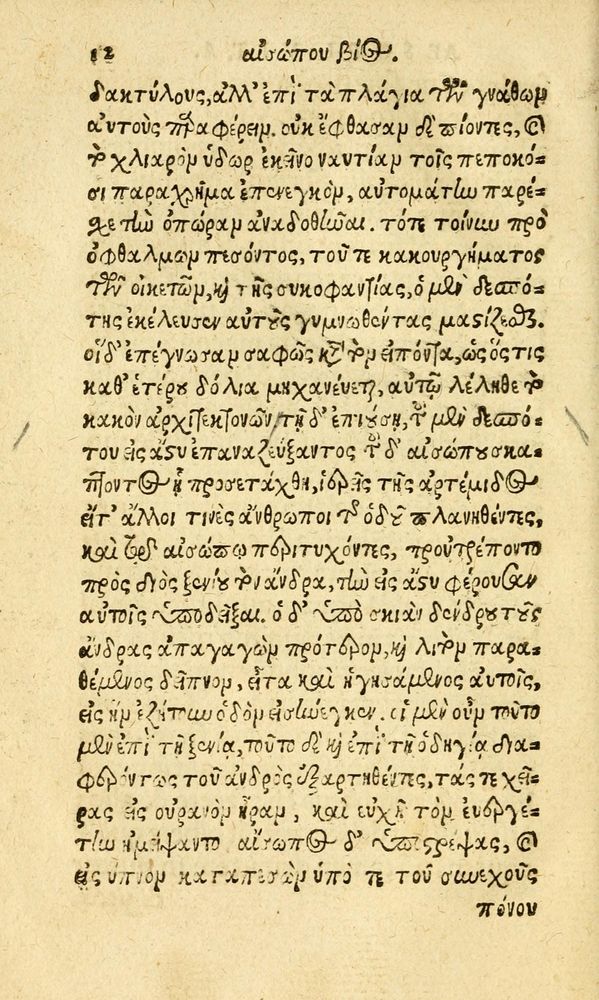 12 αἰσώπου βίος.
δακτύλους, ἀλλ' ἐπὶ τὰ πλάγια τῶν γνάθων
αὐτοὺς παραφέρειν. οὐκ ἔφθασαν δὲ πιόντες, καὶ
τὸ χλιαρὸν ὕδωρ ἐκεῖνο ναυτίαν τοῖς πεποκό-
σι παραχρῆμα ἐπενεγκὸν, αὐτομάτην παρέ-
χε τὴν ὀπώραν ἀναδοθῆναι. τότε τοίνυν πρὸ
ὀφθαλμῶν πεσόντος, τοῦ τε κακουργήματος
τῶν οἰκετῶν, καὶ τῆς συκοφαντίας, ὁ μὲν δεσπό-
της ἐκέλευσεν αὐτοὺς γυμνωθέντας μαστίζεσθαι.
οἱ δ' ἐπέγνωσαν σαφῶς κατὰ τὸν εἰπόντα, ὡς ὅστις
καθ' ἑτέρου δόλια μηχανεύεται, αὐτῷ λέληθε τὸ
κακὸν ἀρχιτεκτονῶν. τῇ δ' ἐπιούσῃ, τοῦ μὲν δεσπό-
του εἰς ἄστυ ἐπαναζεύξαντος τοῦ δ' αἰσώπου σκά-
πτοντος ᾗ προσετάχθη, ἱερεῖς τῆς ἀρτέμιδος
εἴτ' ἄλλοι τινὲς ἄνθρωποι τῆς ὁδοῦ πλανηθέντες,
καὶ τῷ αἰσώπῳ περιτυχόντες, προὔτρέποντο
πρὸς διὸς ξενίου τὸν ἄνδρα, τὴν εἰς ἄστυ φέρουσαν
αὐτοῖς ὑποδεῖξαι. ὁ δ' ὑπὸ σκιὰν δένδρου τοὺς
ἄνδρας ἀπαγαγὼν πρότερον, καὶ λιτὸν παρα-
θέμενος δεῖπνον, εἶτα καὶ ἡγησάμενος αὐτοῖς,
εἰς ἣν ἐζήτουν ὁδὸν εἰσήνεγκεν. οἱ μὲν οὖν τοῦτο
μὲν ἐπὶ τῇ ξενίᾳ, τοῦτο δὲ καὶ ἐπὶ τῇ ὁδηγίᾳ δια-
φερόντως τοῦ ἀνδρὸς ἐξαρτηθέντες, τάς τε χεῖ-
ρας εἰς οὐρανὸν ἦραν, καὶ εὐχῇ τὸν εὐεργέ-
την ἠμείψαντο αἴσωπος δ' ὑποστρέψας, καὶ
εἰς ὕπνον καταπεσὼν ὑπό τε τοῦ συνεχοῦς
πόνου